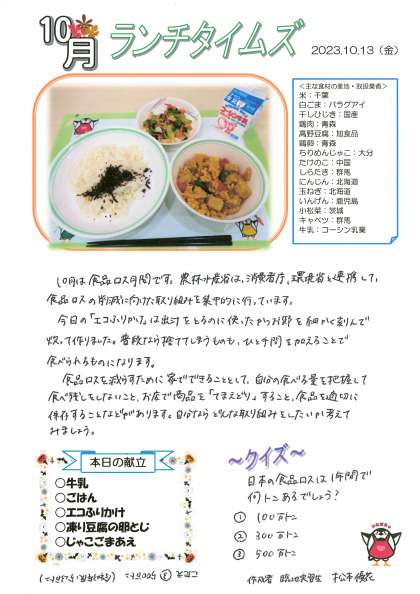 10月 ランチタイムズ
2023.10.13（金）
＜主な食材の産地・取扱業者＞
米：千葉
白ごま：パラグアイ
干しひじき：国産
鶏肉：青森
高野豆腐：旭食品
鶏卵：青森
ちりめんじゃこ：大分
たけのこ：中国
しらたき：群馬
にんじん：北海道
玉ねぎ：北海道
いんげん：鹿児島
小松菜：茨城
キャベツ：群馬
牛乳：コーシン乳業
10月は食品ロス月間です。農林水産省は、消費者庁、環境省と連携して、
食品ロスの削減に向けた取り組みを集中的に行っています。
今日の「エコふりかけ」は出汁をとるのに使ったかつお節を細かく刻んで
炒って作りました。普段なら捨ててしまうものも、ひと手間を加えることで
食べられるものになります。
食品ロスを減らすために家でできることとして、自分の食べる量を把握して
食べ残しをしないこと、お店で商品を「てまえどり」すること、食品を適切に
保存することなどがあります。自分ならどんな取り組みをしたいか考えて
みましょう。
本日の献立
○牛乳
○ごはん
○エコふりかけ
○凍り豆腐の卵とじ
○じゃこごまあえ
～クイズ～
日本の食品ロスは1年間で
何トンあるでしょう？
① 100万トン
② 300万トン
③ 500万トン
こたえ ③ 500万トン
作成者 臨地実習生